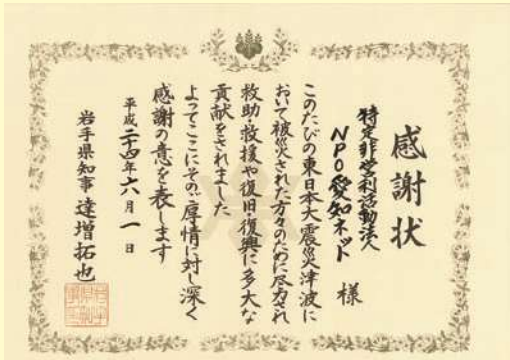 感謝状
特定非営利活動法人
NPO愛知ネット 様
このたびの東日本大震災津波に
おいて被災された方々のために尽力され
救助・救援や復旧・復興に多大な
貢献をされました
よってここにその御厚情に対し深く
感謝の意を表します
平成二十四年六月一日
岩手県知事 達増拓也